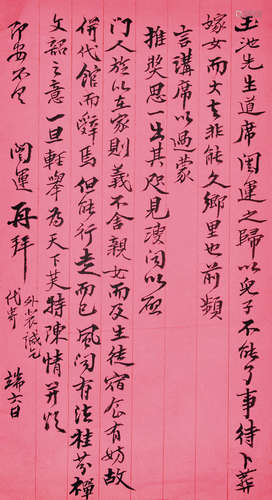 玉池先生道席闿运之归以儿子不能了事待卜葬
嫁女而大去非能久乡里也前频
言讲席以为蒙
推奖思一出其咫见渎闻以应
门人旅以在家则义不舍亲女而及生徒宿食有妨故
併代馆而辞焉但能行走而已风闻有法桂芬禅
文韶之意一旦轻举为天下笑特陈情并颂
即安不尽
闿运再拜
外裳缄乞
代寄
端六日